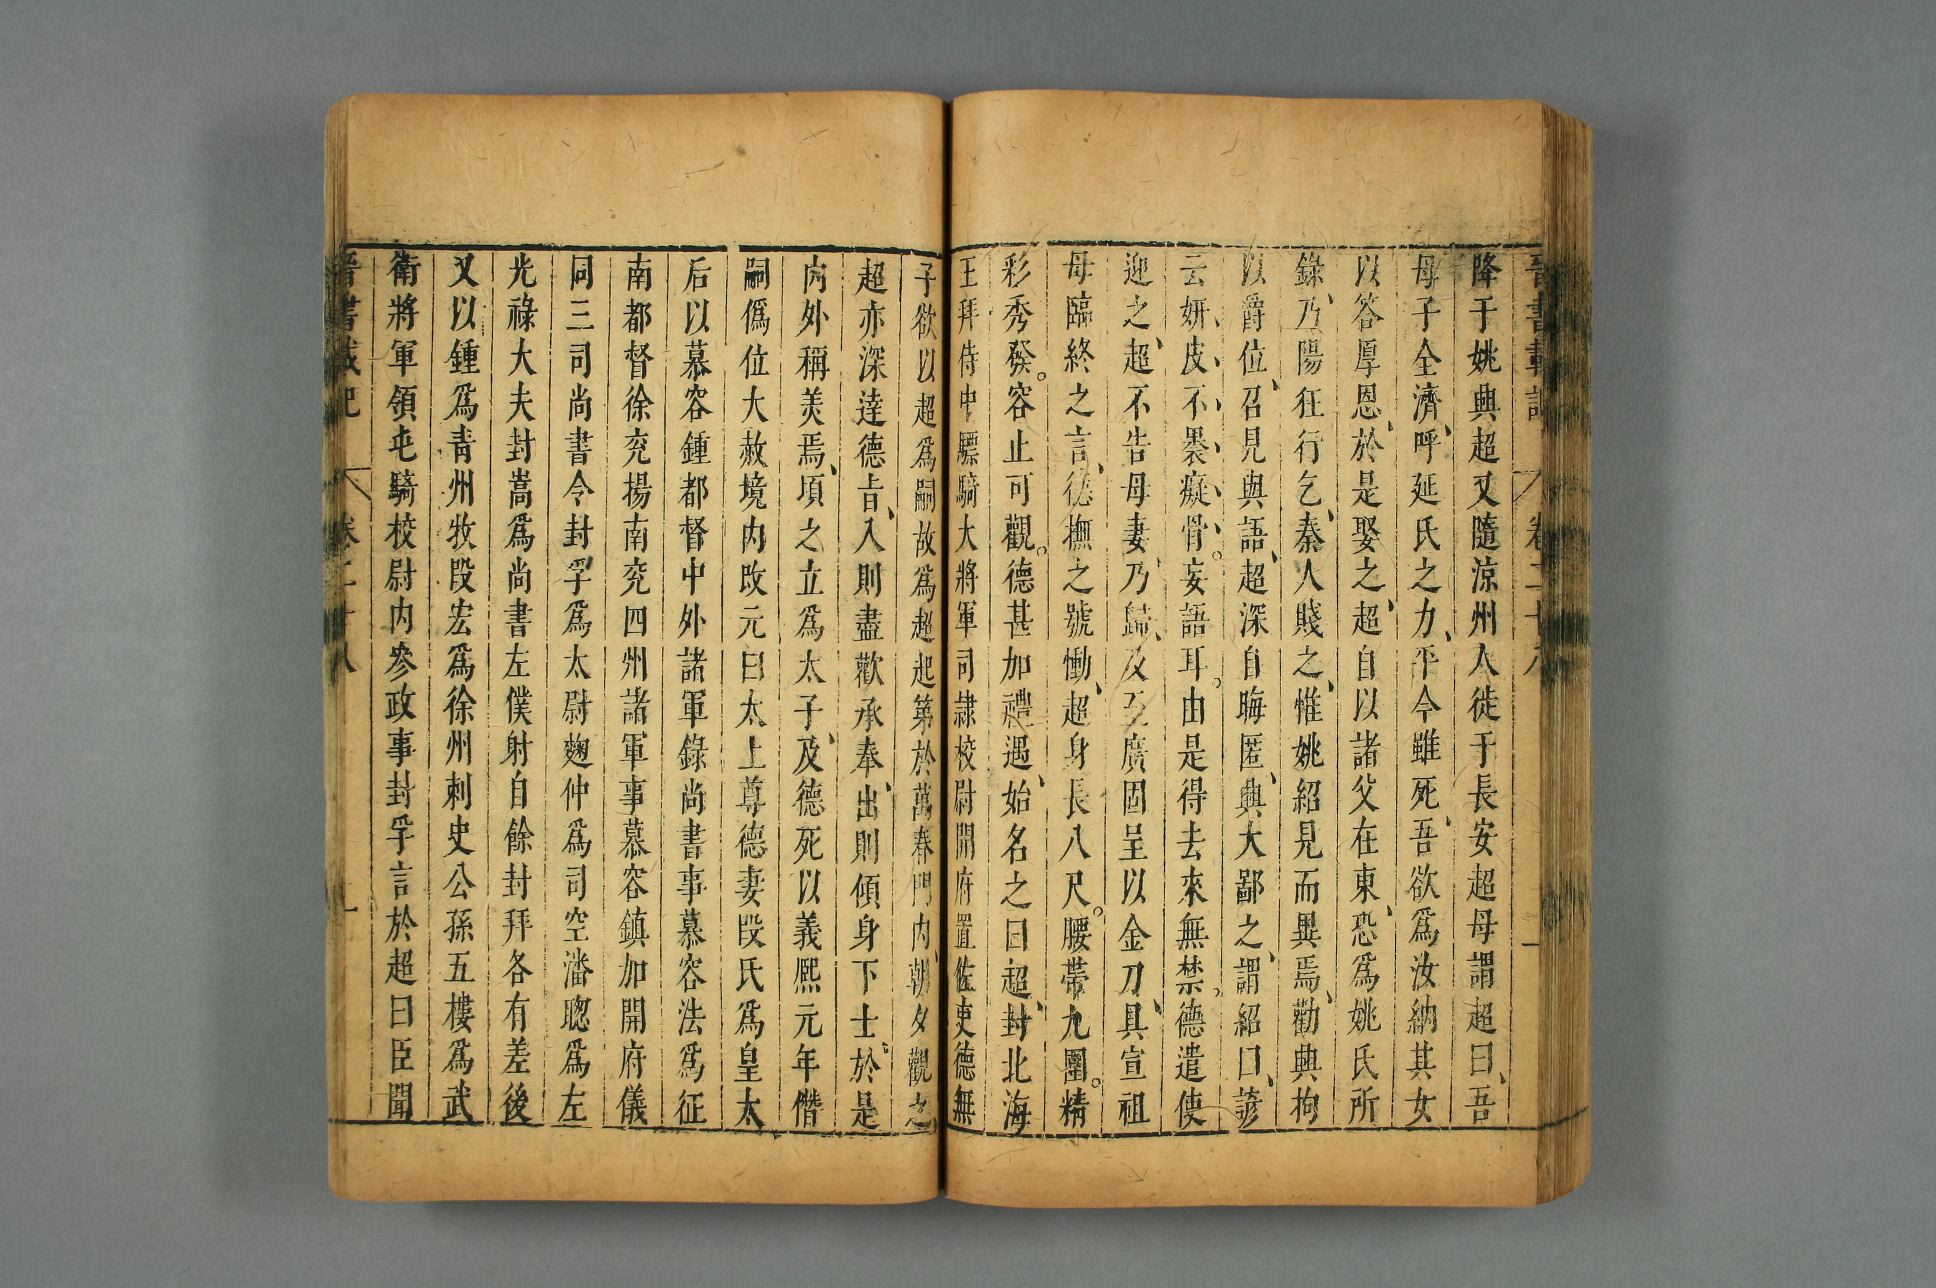 晉書載記 卷二十八 一
降于姚興超又隨涼州人徙于長安超母謂超曰吾
母子全濟呼延氏之力平今雖死吾欲爲汝納其女
以答厚恩於是娶之超自以諸父在東恐爲姚氏所
錄乃陽狂行乞秦人賤之惟姚紹見而異焉勸興拘
以爵位召見與語超深自晦匿興大鄙之謂紹曰諺
云妍皮不裹癡骨妄語耳由是得去來無禁德遣使
迎之超不告母妻乃歸及至廣固呈以金刀具宣祖
母臨終之言德撫之號慟超身長八尺腰帶九圍精
彩秀發容止可觀德甚加禮遇始名之曰超封北海
王拜侍中驃騎大將軍司隷校尉開府置佐吏德無
子欲以超爲嗣故爲超起第於萬春門內朝夕觀之
超亦深達德旨入則盡歡承奉出則傾身下士於是
內外稱美焉頃之立爲太子及德死以義熙元年僭
嗣僞位大赦境內改元曰太上尊德妻段氏爲皇太
后以慕容鍾都督中外諸軍錄尚書事慕容法爲征
南都督徐兗揚南兗四州諸軍事慕容鎮加開府儀
同三司尚書令封孚爲太尉麴仲爲司空潘聰爲左
光祿大夫封嵩爲尚書左僕射自餘封拜各有差後
又以鍾爲靑州牧段宏爲徐州刺史公孫五樓爲武
衛將軍領屯騎校尉內參政事封孚言於超曰臣聞
晉書載記 卷二十八